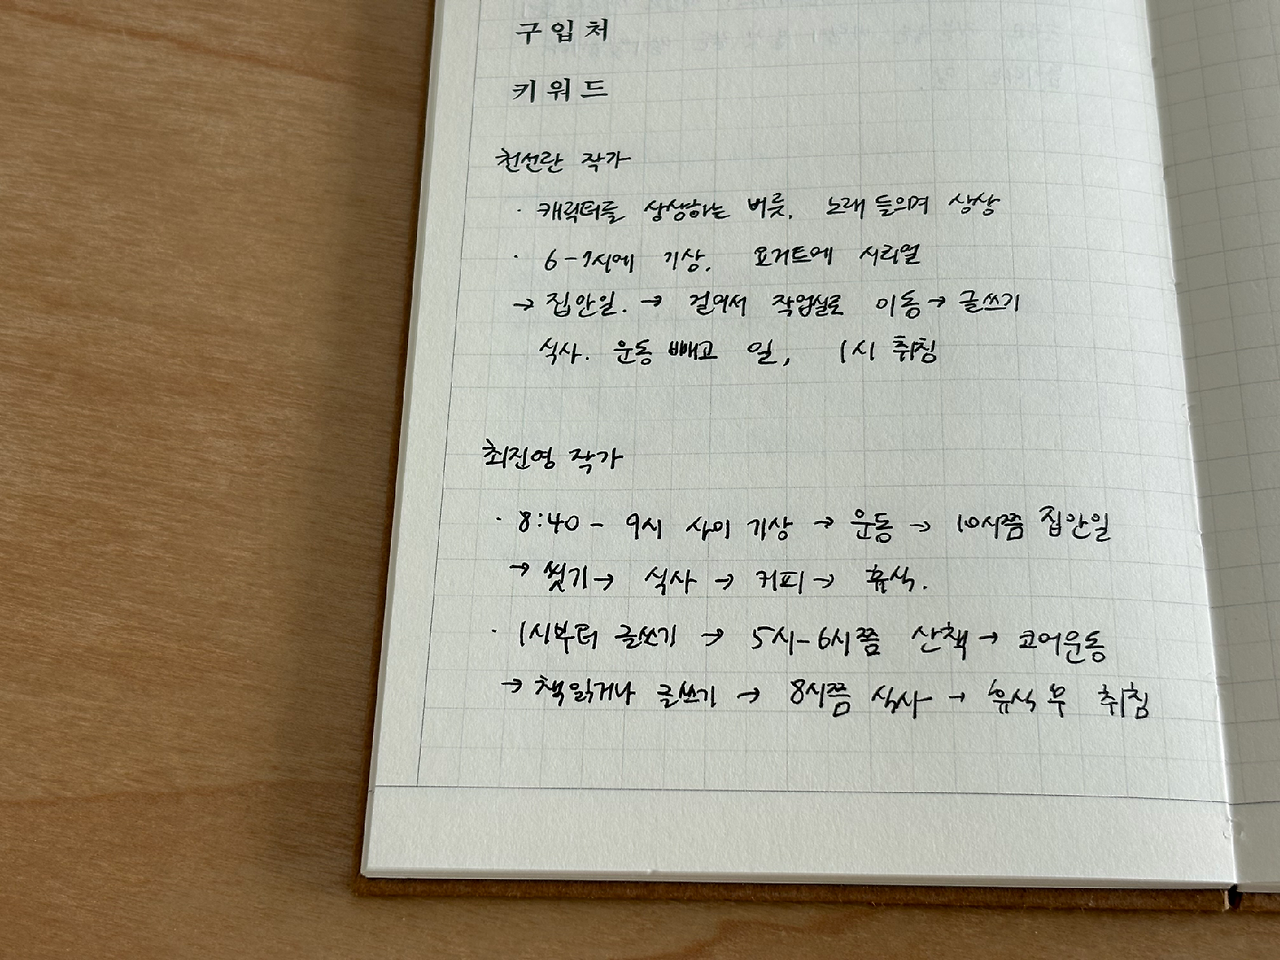 구입처
키워드
천선란 작가
· 캐릭터를 상상하는 버릇. 노래 들으며 상상
· 6-7시에 기상. 요거트에 시리얼
→ 집안일. → 걸어서 작업실로 이동 → 글쓰기
식사. 운동 빼고 일, 1시 취침
최진영 작가
· 8:40 - 9시 사이 기상 → 운동 → 10시쯤 집안일
→ 씻기 → 식사 → 커피 → 휴식.
· 1시부터 글쓰기 → 5시-6시쯤 산책 → 코어운동
→ 책 읽거나 글쓰기 → 8시쯤 식사 → 휴식 후 취침